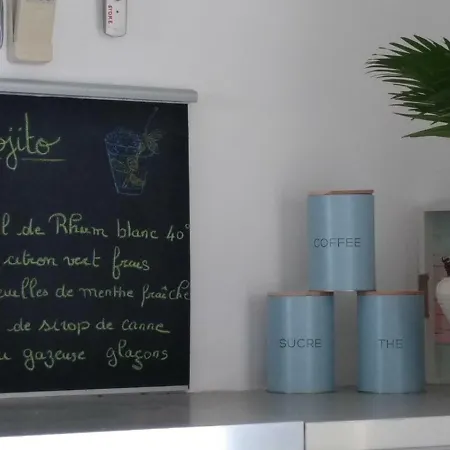 ojito
l de Rhum blanc 40°
citron vert frais
euilles de menthe fraîche
de sirop de canne
u gazeuse glaçons
COFFEE
SUCRE
THE
STORE